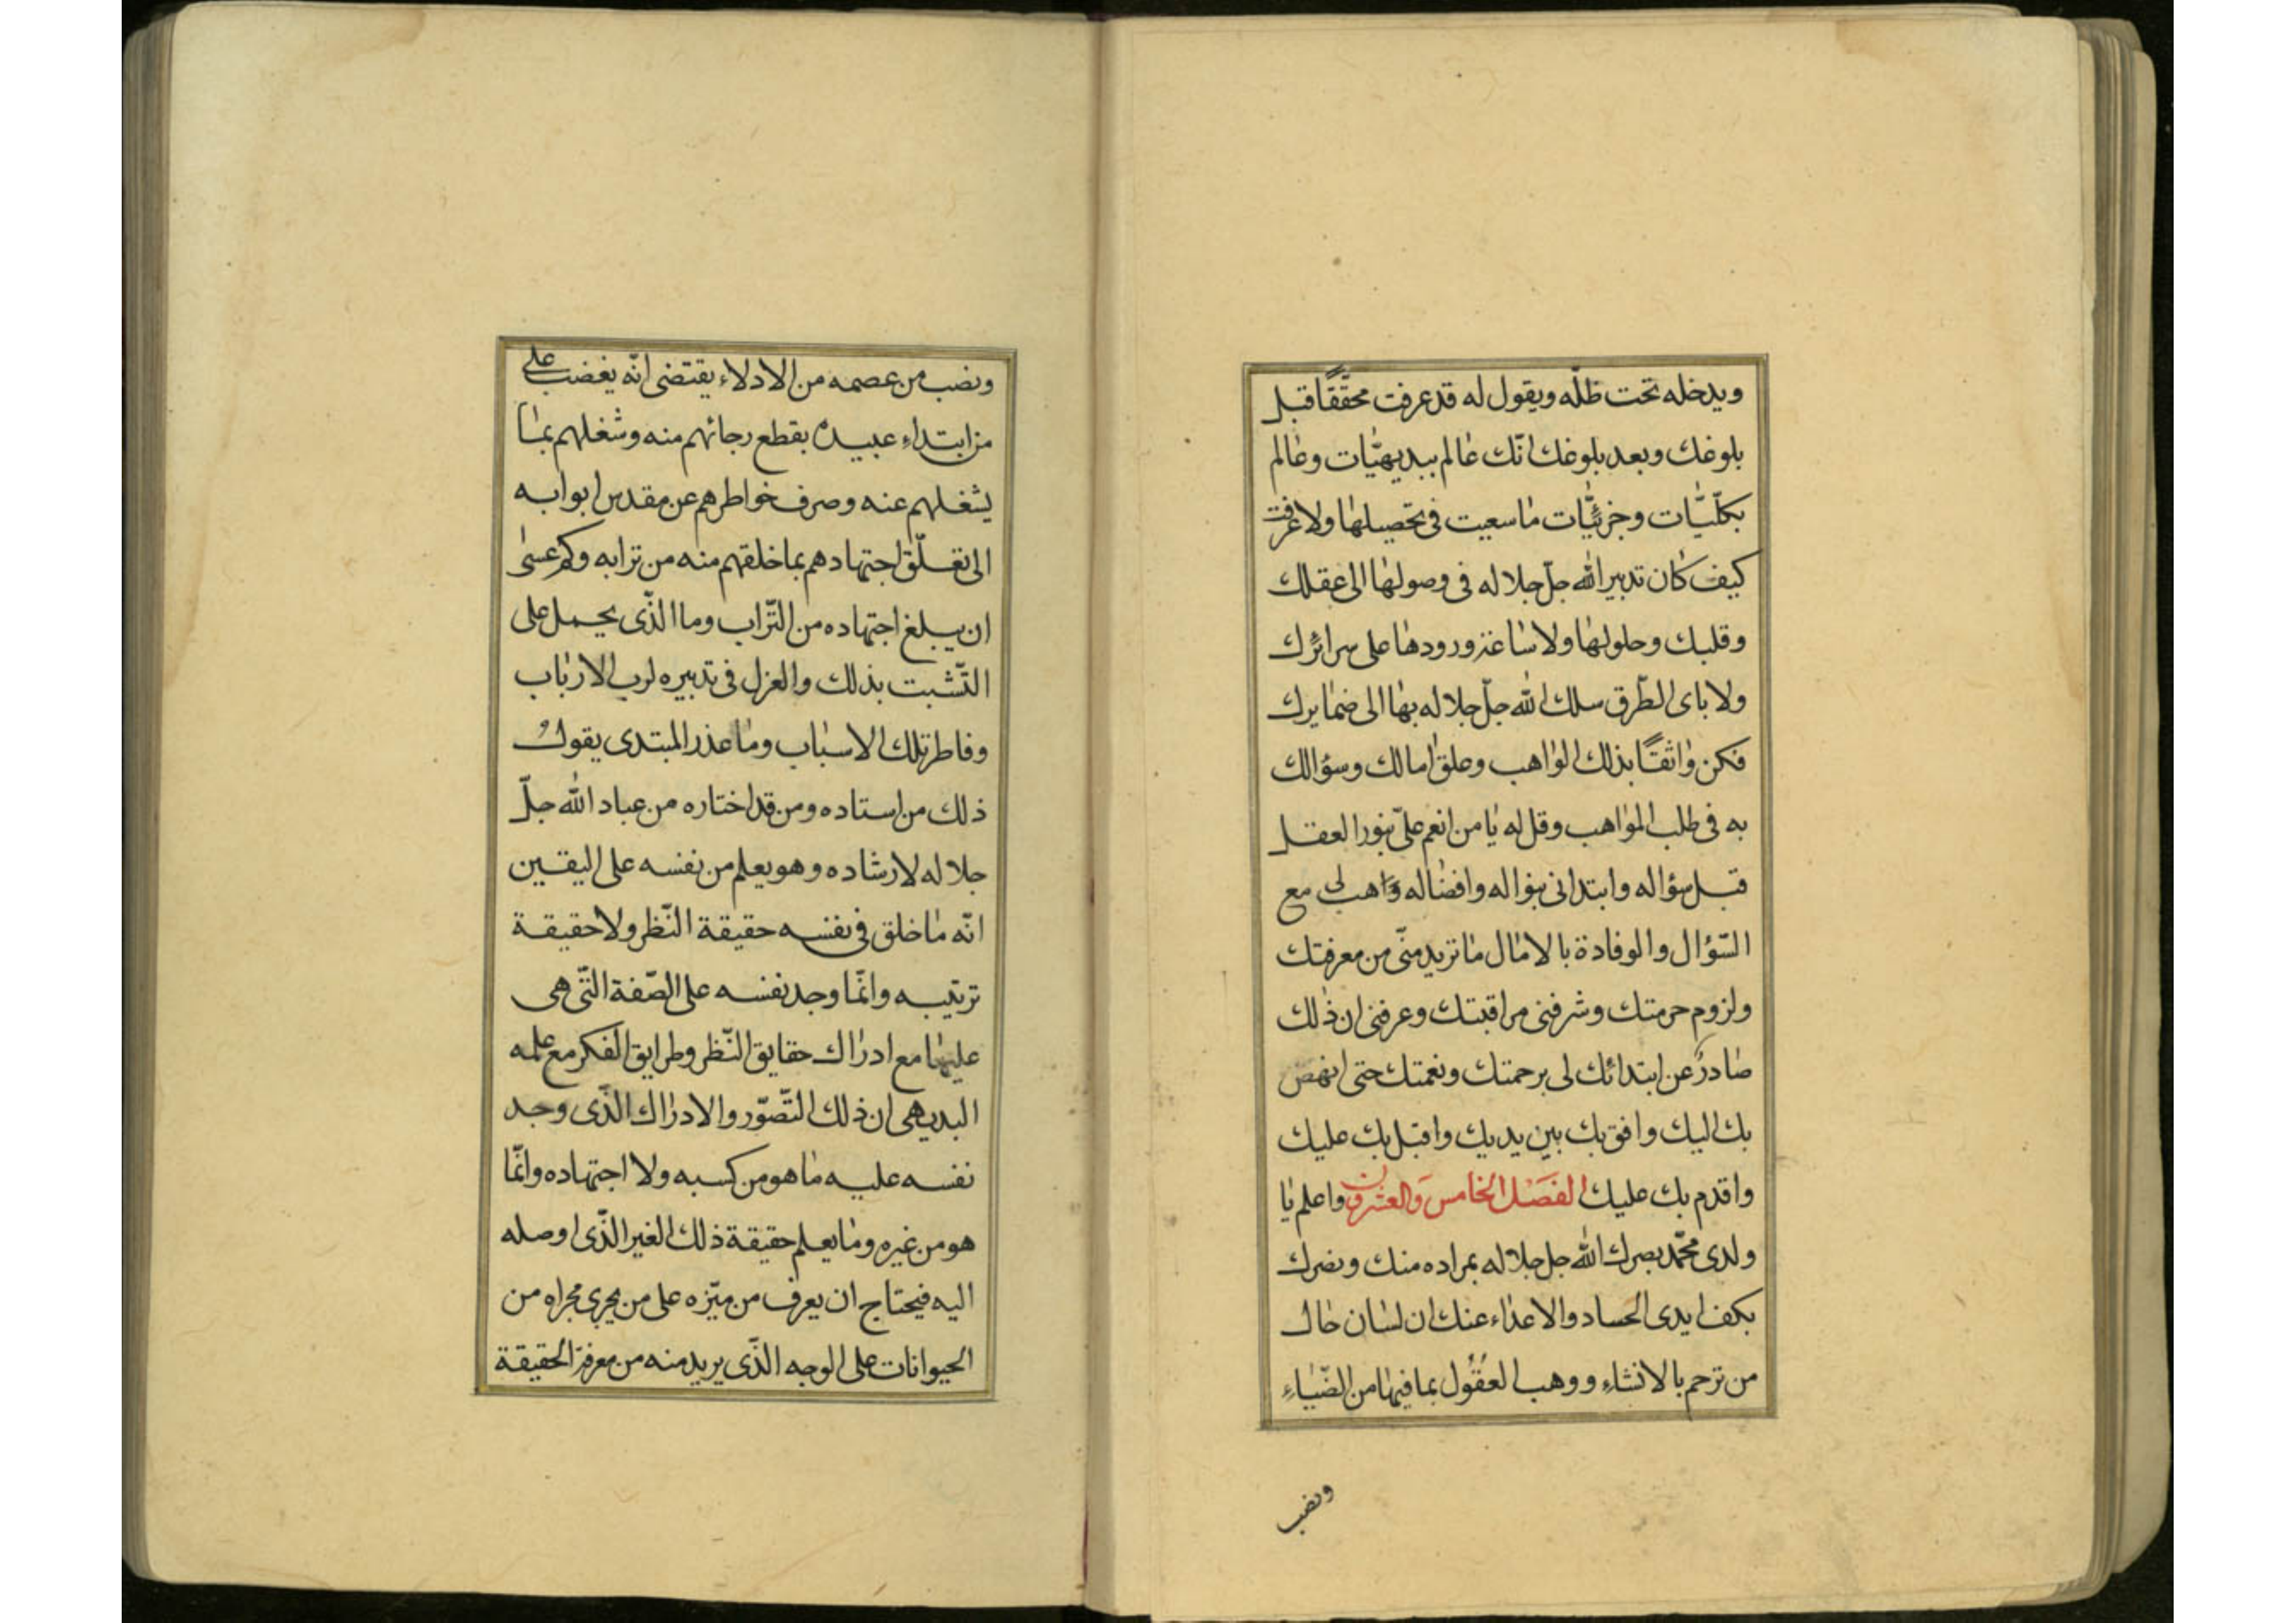 ويدخله تحت ظلّه ويقول له قد عرفت محقّقًا قبل
بلوغك وبعد بلوغك انّك عالم ببديهيّات وعالم
بكلّيّات وجزئيّات ما سعيت فى تحصيلها ولا عرفت
كيف كان تدبير الله جلّ جلاله فى وصولها الى عقلك
وقلبك وحلولها ولا ساعة ورودها على سرائرك
ولا باى الطّرق سلك الله جلّ جلاله بها الى ضمايرك
فكن واثقًا بذلك الواهب وعلق امالك وسؤالك
به فى طلب المواهب وقل له يا من انعم علىّ بنور العقل
قبل سؤاله وابتدانى بنواله وافضاله هب لى مع
السّؤال والوفادة بالامال ما تريد منّى من معرفتك
ولزوم حرمتك وشرفنى مراقبتك وعرفنى ان ذلك
صادرٌ عن ابتدائك لى برحمتك ونعمتك حتى انهض
بك اليك وافق بك بين يديك واقبل بك عليك
واقدم بك عليك الفصل الخامس والعشرون واعلم يا
ولدى محمّد بصرك الله جل جلاله بمراده منك ونصرك
بكف ايدى الحساد والاعداء عنك ان لسان حال
من ترحم بالانشاء ووهب العقُول بما فيها من الضّياء
ونصب
ونصب من عصمه من الادلاء يقتضى انّه يغضب على
من ابتداء عبيده بقطع رجائهم منه وشغلهم بما
يشغلهم عنه وصرف خواطرهم عن مقدس ابوابه
الى تعلّق اجتهادهم بما خلقهم منه من ترابه وكم عسى
ان يبلغ اجتهاده من التّراب وما الّذى يحمل على
التّشبت بذلك والعزل فى تدبيره لرب الارباب
وفاطر تلك الاسباب وما عذر المبتدى يقول
ذلك من استاده ومن قد اختاره من عباد الله جلّ
جلاله لارشاده وهو يعلم من نفسه على اليقين
انّه ما خلق فى نفسه حقيقة النّظر ولا حقيقة
ترتيبه وانّما وجد نفسه على الصّفة الّتى هى
عليها مع ادراك حقايق النّظر وطرايق الفكر مع علمه
البديهى ان ذلك التّصوّر والادراك الّذى وجد
نفسه عليه ما هو من كسبه ولا اجتهاده وانّما
هو من غيره وما يعلم حقيقة ذلك الغير الّذى اوصله
اليه فيحتاج ان يعرف من ميّزه على من يجرى مجراه من
الحيوانات على الوجه الّذى يريد منه من معرفة الحقيقة